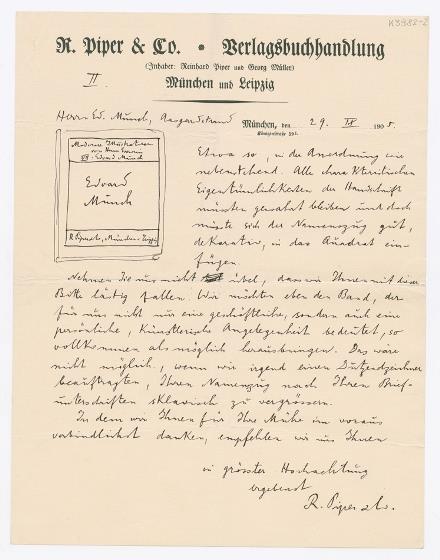 K3982-2
R. Piper & Co. • Verlagsbuchhandlung
(Inhaber: Reinhard Piper und Georg Müller)
München und Leipzig
II.
Herrn Ed. Munch, Aasgardstrand
München, den 29. IX 1905.
Königinstraße 59 I.
Moderne Illustratoren
von Hermann
Edvard Munch
Edvard
Munch
R. Piper & Co., München-Leipzig
Etwa so, in der Anordnung wie
nebenstehend. Alle charakteristischen
Eigentümlichkeiten der Handschrift
müssten gewahrt bleiben und doch
müsste sich der Namenszug gut,
dekorativ, in das Quadrat ein-
fügen.
Nehmen Sie uns nicht übel, dass wir Ihnen mit dieser
Bitte lästig fallen. Wir möchten eben den Band, der
für uns nicht nur eine geschäftliche, sondern auch eine
persönliche, künstlerische Angelegenheit bedeutet, so
vollkommen als möglich herausbringen. Das wäre
nicht möglich, wenn wir irgend einen Dutzendzeichner
beauftragten, Ihren Namenszug nach Ihren Brief-
unterschriften sklavisch zu vergrössern.
In dem wir Ihnen für Ihre Mühe im voraus
verbindlichst danken, empfehlen wir uns Ihnen
in grösster Hochachtung
ergebenst
R. Piper & Co.